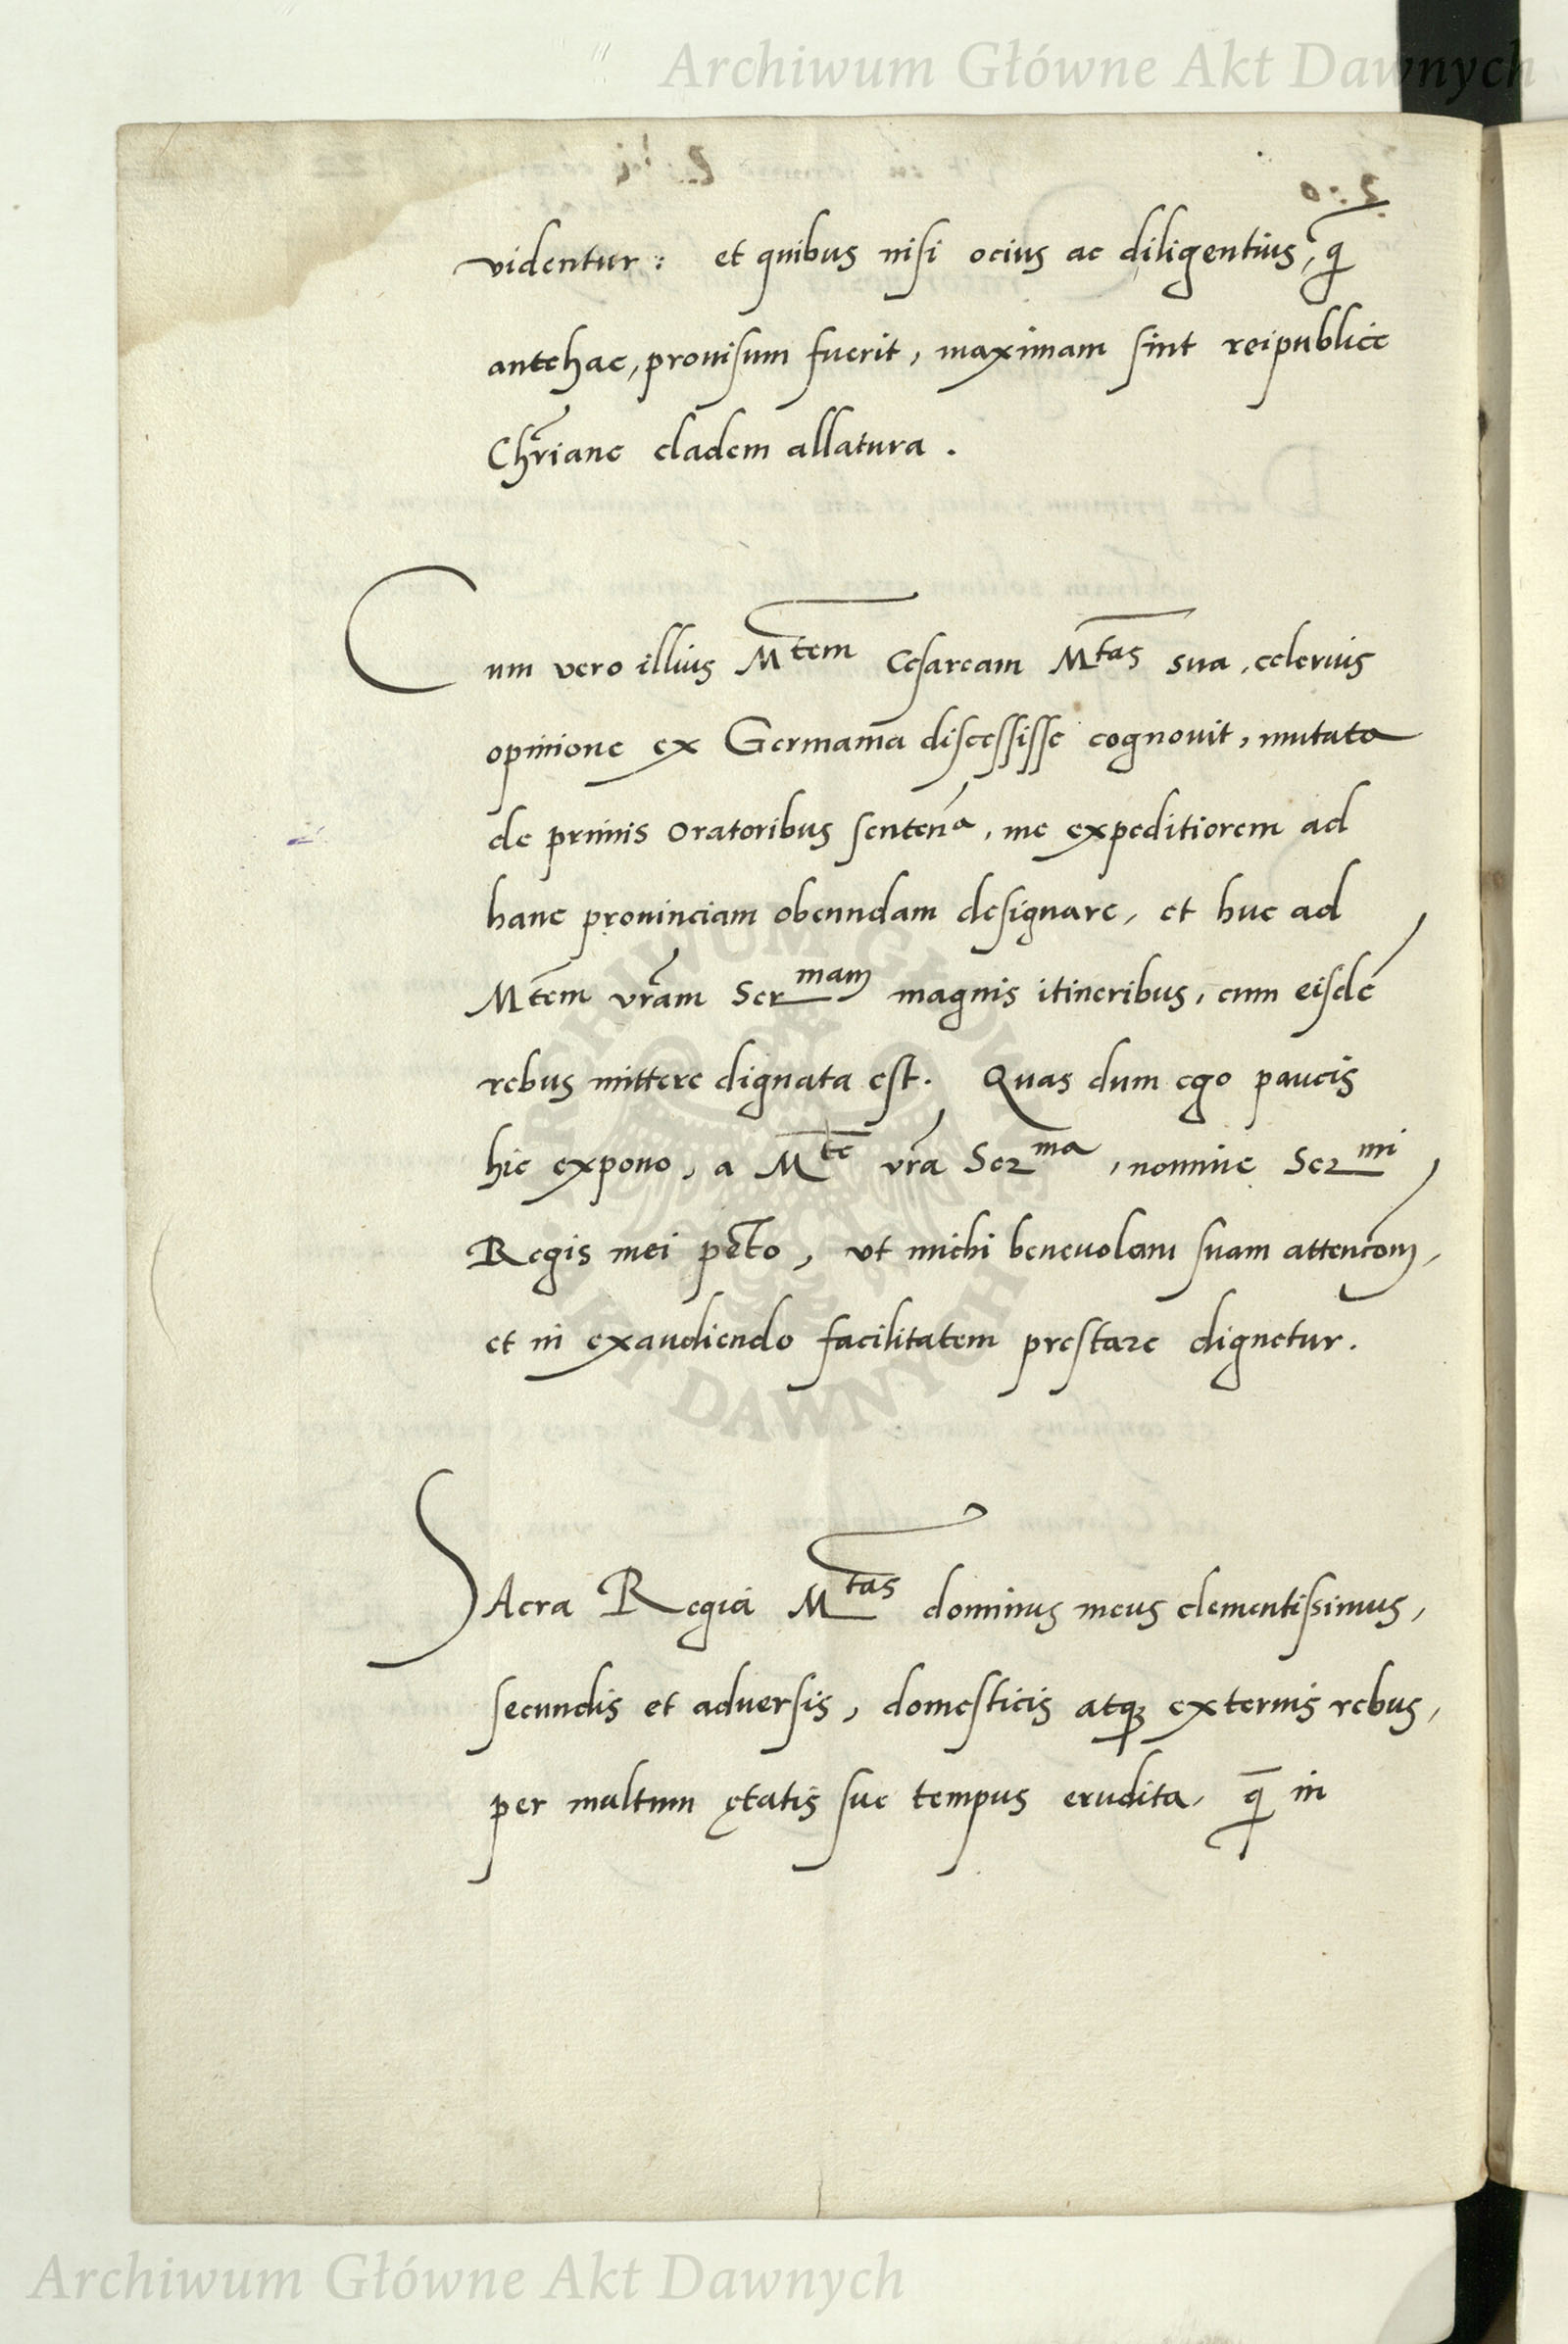 Archiwum Główne Akt Dawnych
videntur: et quibus nisi ocius ac diligentius, q̄
antehac, prouisum fuerit, maximam sint reipublice
Chr̄iane cladem allatura.
Cum vero illius M^tem Cesaream M^tas sua, celerius
opinione ex Germania discessisse cognouit, mutata
de primis oratoribus senten^a, me expeditiorem ad
hanc prouinciam obeundam designare, et huc ad
Mtēm vrām Ser^mam magnis itineribus, cum eisdē
rebus mittere dignata est. Quas dum ego paucis
hic expono, a M^te vrā Ser^ma, nomine Ser^mi
Regis mei peto, vt michi beneuolam suam attencōm,
et in exaudiendo facilitatem prestare dignetur.
SAcra Regia M^tas dominus meus clementissimus,
secundis et aduersis, domesticis atq; externis rebus,
per multum ętatis sue tempus erudita, q̄ in
ARCHIWUM GŁÓWNE AKT DAWNYCH
Archiwum Główne Akt Dawnych